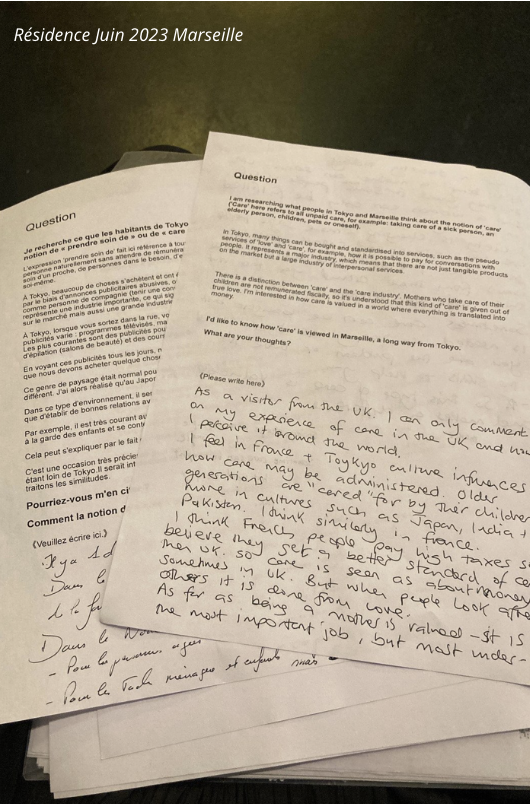 Résidence Juin 2023 Marseille
Question
Je recherche ce que les habitants de Tokyo
notion de « prendre soin de » ou de « care
L'expression 'prendre soin de' fait ici référence à tou
personne naturellement sans attendre de rémunéra
soin d'un proche, de personnes dans le besoin, d'e
soi-même.
À Tokyo, beaucoup de choses s'achètent et ont é
par le biais d'annonces publicitaires abusives, o
comme personne de compagnie (tenir une con
représente une industrie importante, ce qui sig
sur le marché mais aussi une grande industrie
À Tokyo, lorsque vous sortez dans la rue, vo
publicités varie : programmes télévisés, ma
Les plus courantes sont des publicités pou
d'épilation (salons de beauté) et des cours
En voyant ces publicités tous les jours, n
que nous devons acheter quelque chose
Ce genre de paysage était normal pou
différent. J'ai alors réalisé qu'au Japon
Dans ce type d'environnement, il se
que d'établir de bonnes relations av
Par exemple, il est très courant av
à la garde des enfants et se cont
Cela peut s'expliquer par le fait
C'est une occasion très précie
étant loin de Tokyo. Il serait int
traitons les similitudes.
Pourriez-vous m'en ci
Comment la notion d
(Veuillez écrire ici.)
Il y a
Dans le
Dans le
- Pour les personnes agées
- Pour les Tach ménagers et enfants mais
Question
I am researching what people in Tokyo and Marseille think about the notion of 'care'
('Care' here refers to all unpaid care, for example: taking care of a sick person, an
elderly person, children, pets or oneself).
In Tokyo, many things can be bought and standardised into services, such as the pseudo
services of 'love' and 'care', for example, how it is possible to pay for conversations with
people. It represents a major industry, which means that there are not just tangible products
on the market but a large industry of interpersonal services.
There is a distinction between 'care' and the 'care industry'. Mothers who take care of their
children are not remunerated fiscally, so it's understood that this kind of 'care' is given out of
true love. I'm interested in how care is valued in a world where everything is translated into
money.
I'd like to know how 'care' is viewed in Marseille, a long way from Tokyo.
What are your thoughts?
(Please write here)
As a visitor from the UK. I can only comment
on my experience of care in the UK and how
I perceive it around the world.
I feel in France + Toykyo culture influences
how care may be administered. Older
generations are "cared" for by their children
more in cultures such as Japan, India +
Pakistan. I think similarly in france.
I think French people pay high taxes so
believe they get a better standard of ca
then UK. So care is seen as about money
sometimes in UK. But when people look after
others it is done from love.
As far as being a mother is valued - It is
the most important job, but most under-